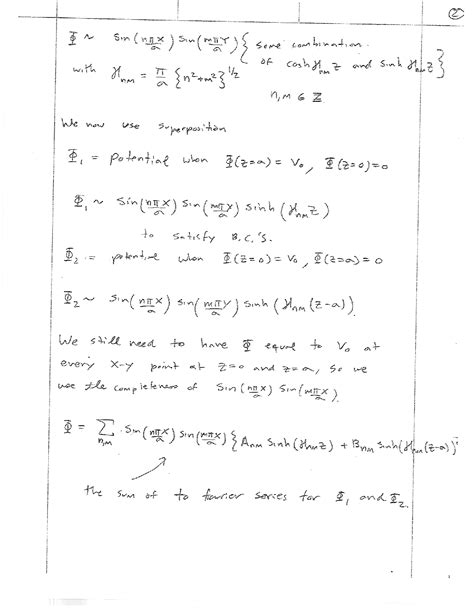 ②
Φ ~ Sin(nπX/a) Sin(mπY/a) { some combination
of cosh γnm z and sinh γnm z }
with γnm = π/a {n²+m²}^1/2
n,m ∈ ℤ
We now use superposition
Φ₁ = Potential when Φ(z=a) = V₀, Φ(z=0)=0
Φ₁ ~ Sin(nπX/a) Sin(mπY/a) sinh(γnm z)
to satisfy B.C.'s.
Φ₂ = potential when Φ(z=0) = V₀, Φ(z=a) = 0
Φ₂ ~ Sin(nπX/a) sin(mπY/a) sinh(γnm(z-a))
We still need to have Φ equal to V₀ at
every X-Y point at z=0 and z=a, so we
use the completeness of Sin(nπX/a) Sin(mπX/a).
Φ = Σn,m Sin(nπX/a) sin(mπX/a) { Anm Sinh(γnm z) + Bnm sinh(γnm(z-a)) }
the sum of to fourier series for Φ₁ and Φ₂.